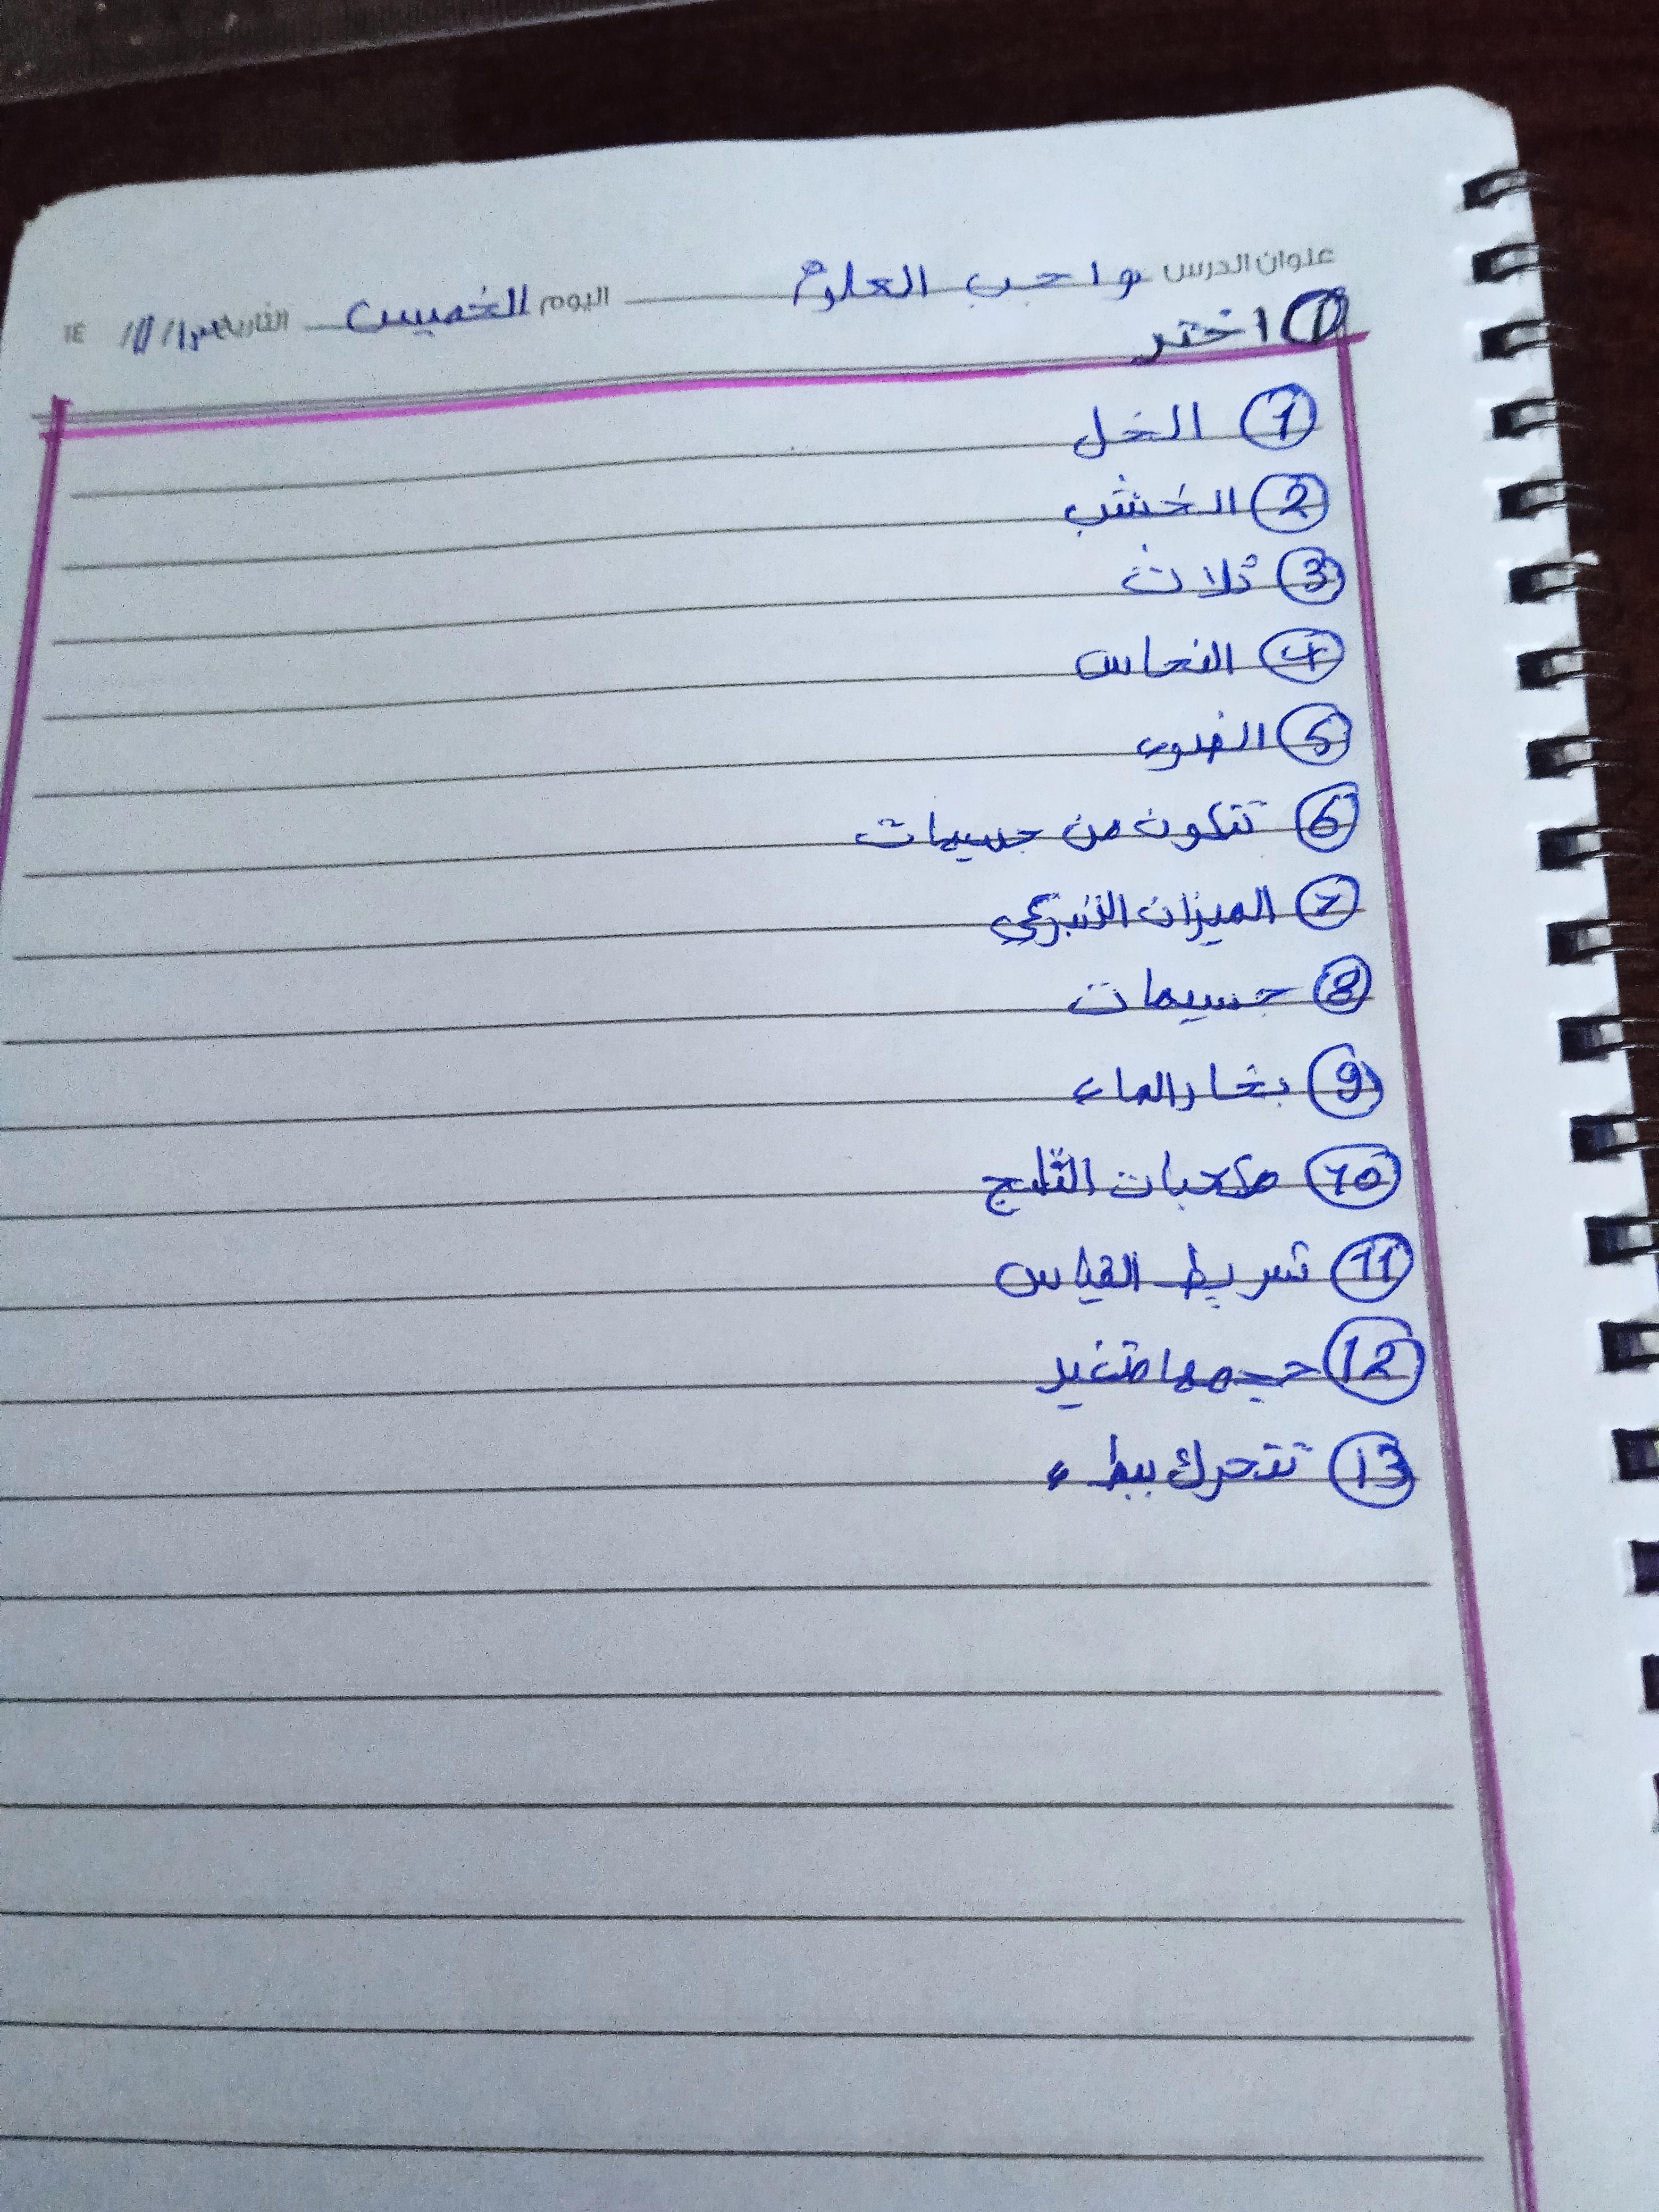 عنوان الدرس واجب العلوم اليوم الخميس التاريخ 14
① اختر
① الخل
② الخشب
③ ثلاث
④ النحاس
⑤ الضوء
⑥ تتكون من جسيمات
⑦ الميزان الزنبركي
⑧ جسيمات
⑨ بخار الماء
⑩ مكعبات الثلج
⑪ شريط القياس
⑫ حجمها متغير
⑬ تتحرك ببطء